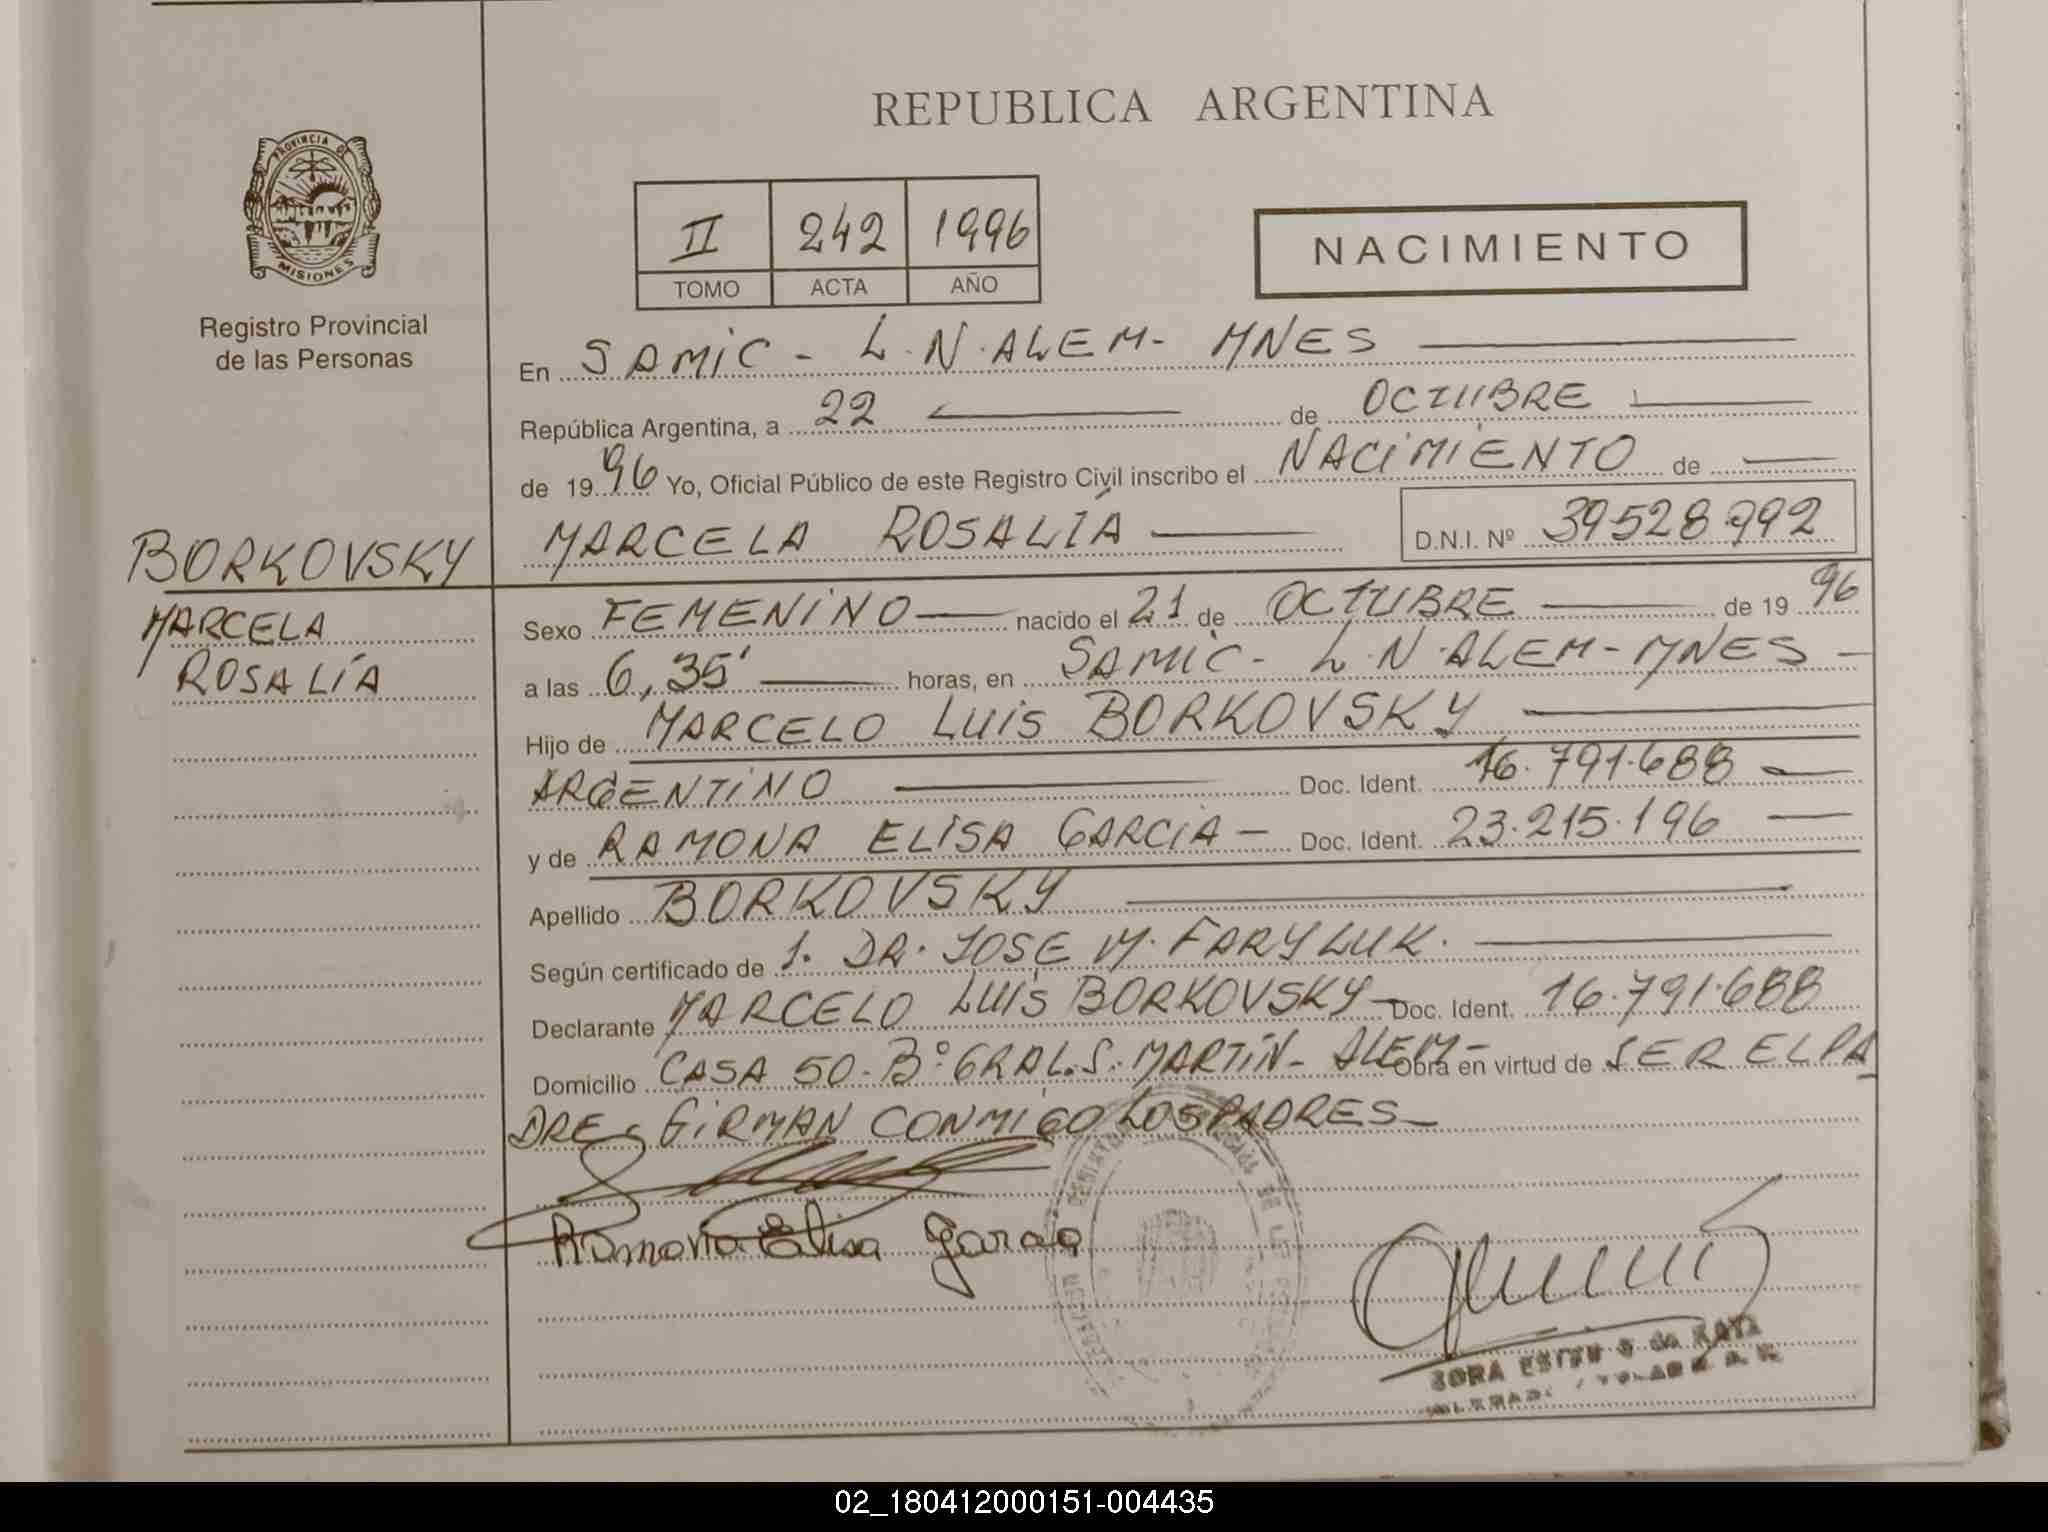 REPUBLICA ARGENTINA
PROVINCIA DE
MISIONES
Registro Provincial
de las Personas
II 242 1996
TOMO ACTA AÑO
NACIMIENTO
En SAMIC - L.N.ALEM- MNES
República Argentina, a 22 de OCTUBRE
de 1996 Yo, Oficial Público de este Registro Civil inscribo el NACIMIENTO de
MARCELA ROSALÍA D.N.I. Nº 39528.992
BORKOVSKY
MARCELA
ROSALÍA
Sexo FEMENINO nacido el 21 de OCTUBRE de 1996
a las 6,35' horas, en SAMIC- L.N.ALEM-MNES-
Hijo de MARCELO LUIS BORKOVSKY
ARGENTINO Doc. Ident. 16.791.688
y de RAMONA ELISA GARCIA- Doc. Ident. 23.215.196
Apellido BORKOVSKY
Según certificado de 1. DR. JOSE M. FARYLUK.
Declarante MARCELO LUIS BORKOVSKY- Doc. Ident. 16.791.688
Domicilio CASA 50-Bº GRAL.S.MARTÍN- ALEM- Obra en virtud de SER EL PA
DRE- FIRMAN CONMIGO LOS PADRES-
Ramona Elisa Garcia
02_180412000151-004435